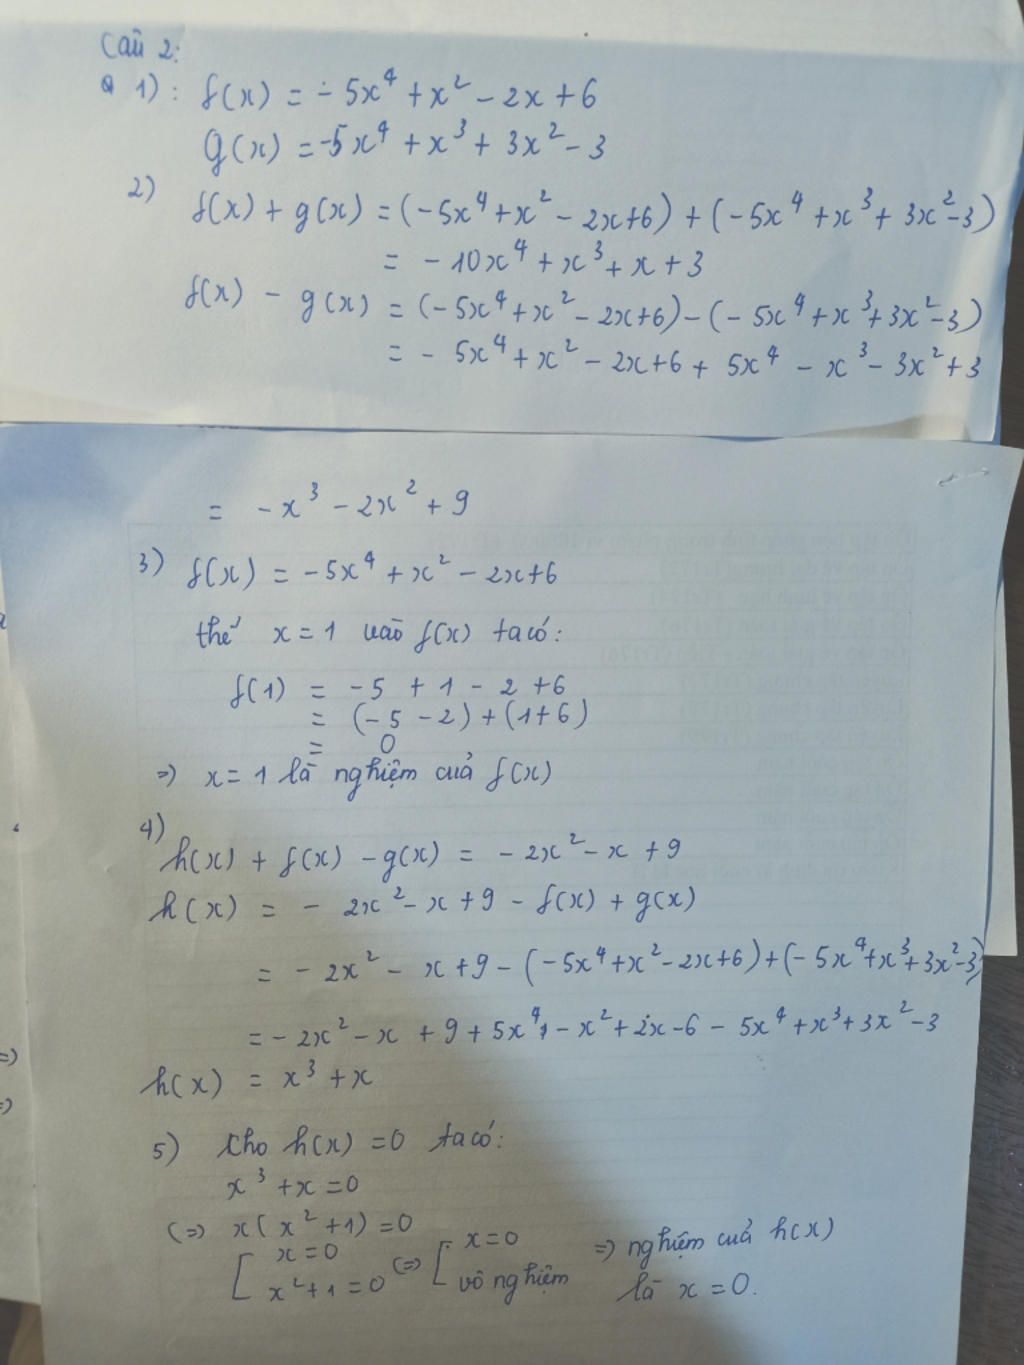 Câu 2:
1): f(x) = -5x⁴ + x² - 2x + 6
g(x) = -5x⁴ + x³ + 3x² - 3
2)
f(x) + g(x) = (-5x⁴ + x² - 2x + 6) + (-5x⁴ + x³ + 3x² - 3)
= -10x⁴ + x³ + x + 3
f(x) - g(x) = (-5x⁴ + x² - 2x + 6) - (-5x⁴ + x³ + 3x² - 3)
= -5x⁴ + x² - 2x + 6 + 5x⁴ - x³ - 3x² + 3
= -x³ - 2x² + 9
3) f(x) = -5x⁴ + x² - 2x + 6
thế x = 1 vào f(x) ta có:
f(1) = -5 + 1 - 2 + 6
= (-5 - 2) + (1 + 6)
= 0
=> x = 1 là nghiệm của f(x)
4)
h(x) + f(x) - g(x) = -2x² - x + 9
h(x) = -2x² - x + 9 - f(x) + g(x)
= -2x² - x + 9 - (-5x⁴ + x² - 2x + 6) + (-5x⁴ + x³ + 3x² - 3)
= -2x² - x + 9 + 5x⁴ - x² + 2x - 6 - 5x⁴ + x³ + 3x² - 3
h(x) = x³ + x
5) Cho h(x) = 0 ta có:
x³ + x = 0
(=> x(x² + 1) = 0
[ x = 0 (=> [ x = 0 => nghiệm của h(x)
x² + 1 = 0 vô nghiệm là x = 0.